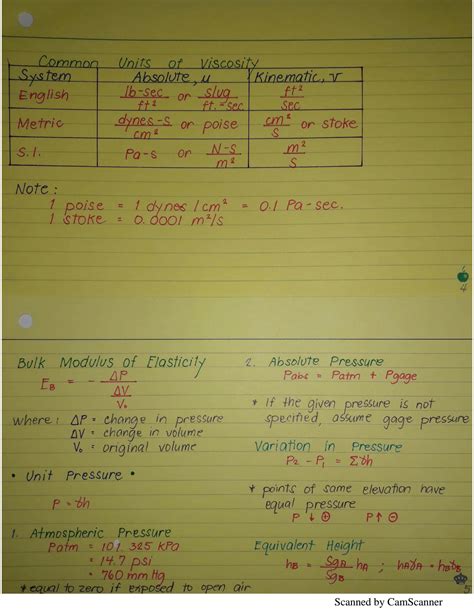 Common Units of Viscosity
System Absolute, μ Kinematic, ν
English lb-sec/ft² or slug/ft.-sec ft²/sec
Metric dynes-s/cm² or poise cm²/s or stoke
S.I. Pa-s or N-s/m² m²/s
Note:
1 poise = 1 dynes/cm² = 0.1 Pa-sec.
1 stoke = 0.0001 m²/s
4
Bulk Modulus of Elasticity
E_B = - ΔP / (ΔV/V₀)
where: ΔP = change in pressure
ΔV = change in volume
V₀ = original volume
• Unit Pressure •
P = γh
1. Atmospheric Pressure
Patm = 101.325 kPa
= 14.7 psi
= 760 mm Hg
* equal to zero if exposed to open air
2. Absolute Pressure
Pabs = Patm + Pgage
* If the given pressure is not
specified, assume gage pressure
Variation in Pressure
P₂ - P₁ = Σγh
* points of same elevation have
equal pressure
P ↓ ⊕ P ↑ ⊖
Equivalent Height
h_B = Sg_A/Sg_B h_A ; h_Aγ_A = h_Bγ_B
5
Scanned by CamScanner